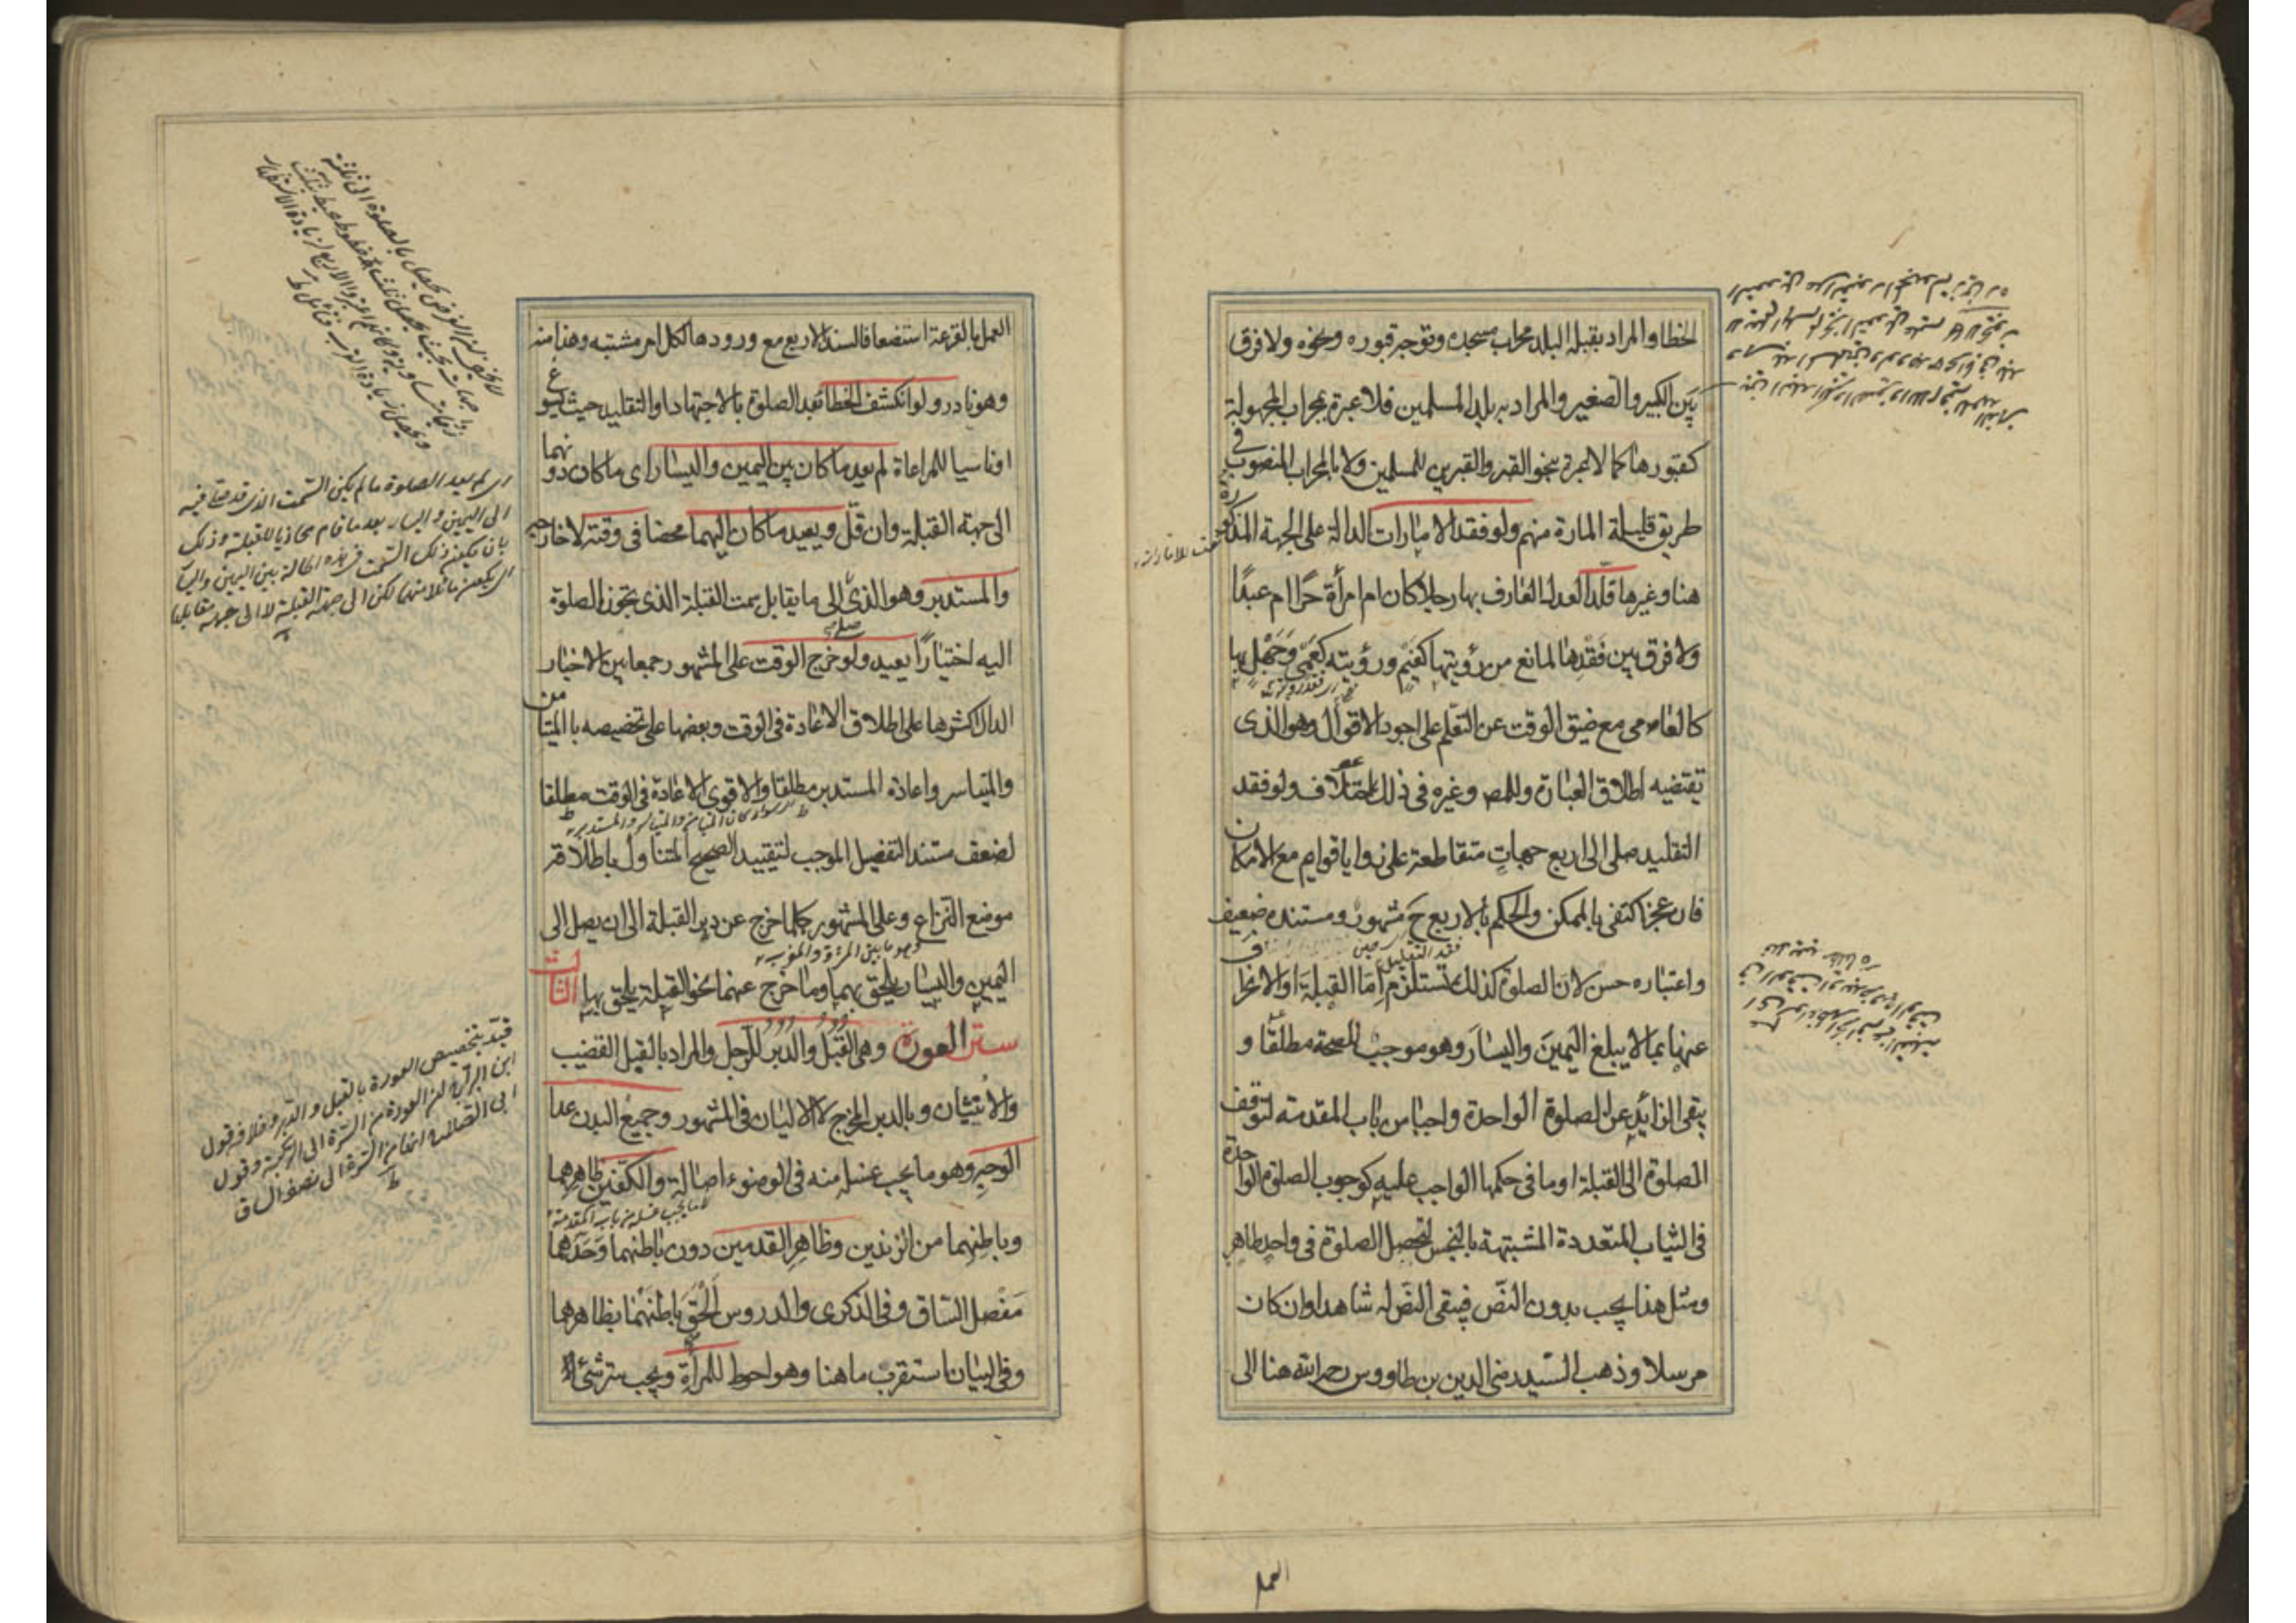 الخطا والمراد بقبلة البلد محراب مسجده وتوجه قبوره ونحوه ولا فرق
بين الكبير والصغير والمراد به بلد المسلمين فلا عبرة بمحراب المجهولة
كقبورها كما لا عبرة بنحو القبر والقبرين للمسلمين ولا بالمحراب المنصوب في
طريق قليلة المارة منهم ولو فقد الامارات الدالة على الجهة المذكورة
هنا وغيرها قلد العدل العارف بها رجلا كان ام امرأة حرا ام عبدا
ولا فرق بين فقدها لمانع من رؤيتها كغيم ورؤيته كعمى وجهل بها
كالعامى مع ضيق الوقت عن التعلم على اجود الاقوال وهو الذى
تقتضيه اطلاق العبارة وللمص وغيره فى ذلك اختلاف ولو فقد
التقليد صلى الى اربع جهات متقاطعة على زوايا قوايم مع الامكان
فان عجز اكتفى بالممكن والحكم بالاربع ح مشهور ومستنده ضعيف
واعتباره حسن لان الصلوة كذلك تستلزم اما القبلة او الانحراف
عنها بما لا يبلغ اليمين واليسار وهو موجب للصحة مطلقا و
يبقى الزائد عن الصلوة الواحدة واجبا من باب المقدمة لتوقف
الصلوة الى القبلة او ما فى حكمها الواجب عليه كوجوب الصلوة الواحدة
فى الثياب المتعددة المشتبهة بالنجس لتحصل الصلوة فى واحد طاهر
ومثل هذا يجب بدون النص فيبقى النص له شاهدا وان كان
مرسلا وذهب السيد رضى الدين بن طاووس رحمه الله هنا الى
العمل
العمل بالقرعة استضعافا لسند الاربع مع ورودها لكل امر مشتبه وهذا منه
وهو نادر ولو انكشف الخطا بعد الصلوة بالاجتهاد او التقليد حيث يسوغ
او ناسيا للمراعاة لم يعد ما كان بين اليمين واليسار اى ما كان دونهما
الى جهة القبلة وان قل ويعيد ما كان اليهما محضا فى وقته لا خارجه
والمستدبر وهو الذى صلى الى ما يقابل سمت القبلة الذى تجوز الصلوة
اليه اختيارا يعيد ولو خرج الوقت على المشهور جمعا بين الاخبار
الدال اكثرها على اطلاق الاعادة فى الوقت وبعضها على تخصيصه بالمتيامن
والمتياسر واعادة المستدبر مطلقا والاقوى الاعادة فى الوقت مطلقا
سواء كان المتيامن والمتياسر والمستدبر
لضعف مستند التفصيل الموجب لتقييد الصحيح المتناول باطلاقه
موضع النزاع وعلى المشهور كلما خرج عن دبر القبلة الى ان يصل الى
وهو ما بين المشرق والمغرب
اليمين واليسار يلحق بهما وما خرج عنهما نحو القبلة يلحق بها الثالث
ستر العورة وهى القبل والدبر للرجل والمراد بالقبل القضيب
والانثيان وبالدبر المخرج لا الاليان فى المشهور وجميع البدن عدا
الوجه وهو ما يجب غسله منه فى الوضوء اصالة والكفين ظاهرهما
وباطنهما من الزندين وظاهر القدمين دون باطنهما وحدهما
مفصل الساق وفى الذكرى والدروس الحق باطنهما بظاهرهما
وفى البيان استقرب ما هنا وهو احوط للمرأة ويجب ستر شئ
اى لم يعد الصلوة ما لم يكن السمت الذى قد صلى فيه
الى اليمين واليسار بعد ما قام محاذيا للقبلة وذلك
بان يكون ذلك السمت فى هذه الحالة بين اليمين واليسار
قيد بتخصيص العورة بالقبل والدبر وخلافه قول
ابن البراج ان العورة من السرة الى الركبة وقول
ابى الصلاح انها من السرة الى نصف الساق